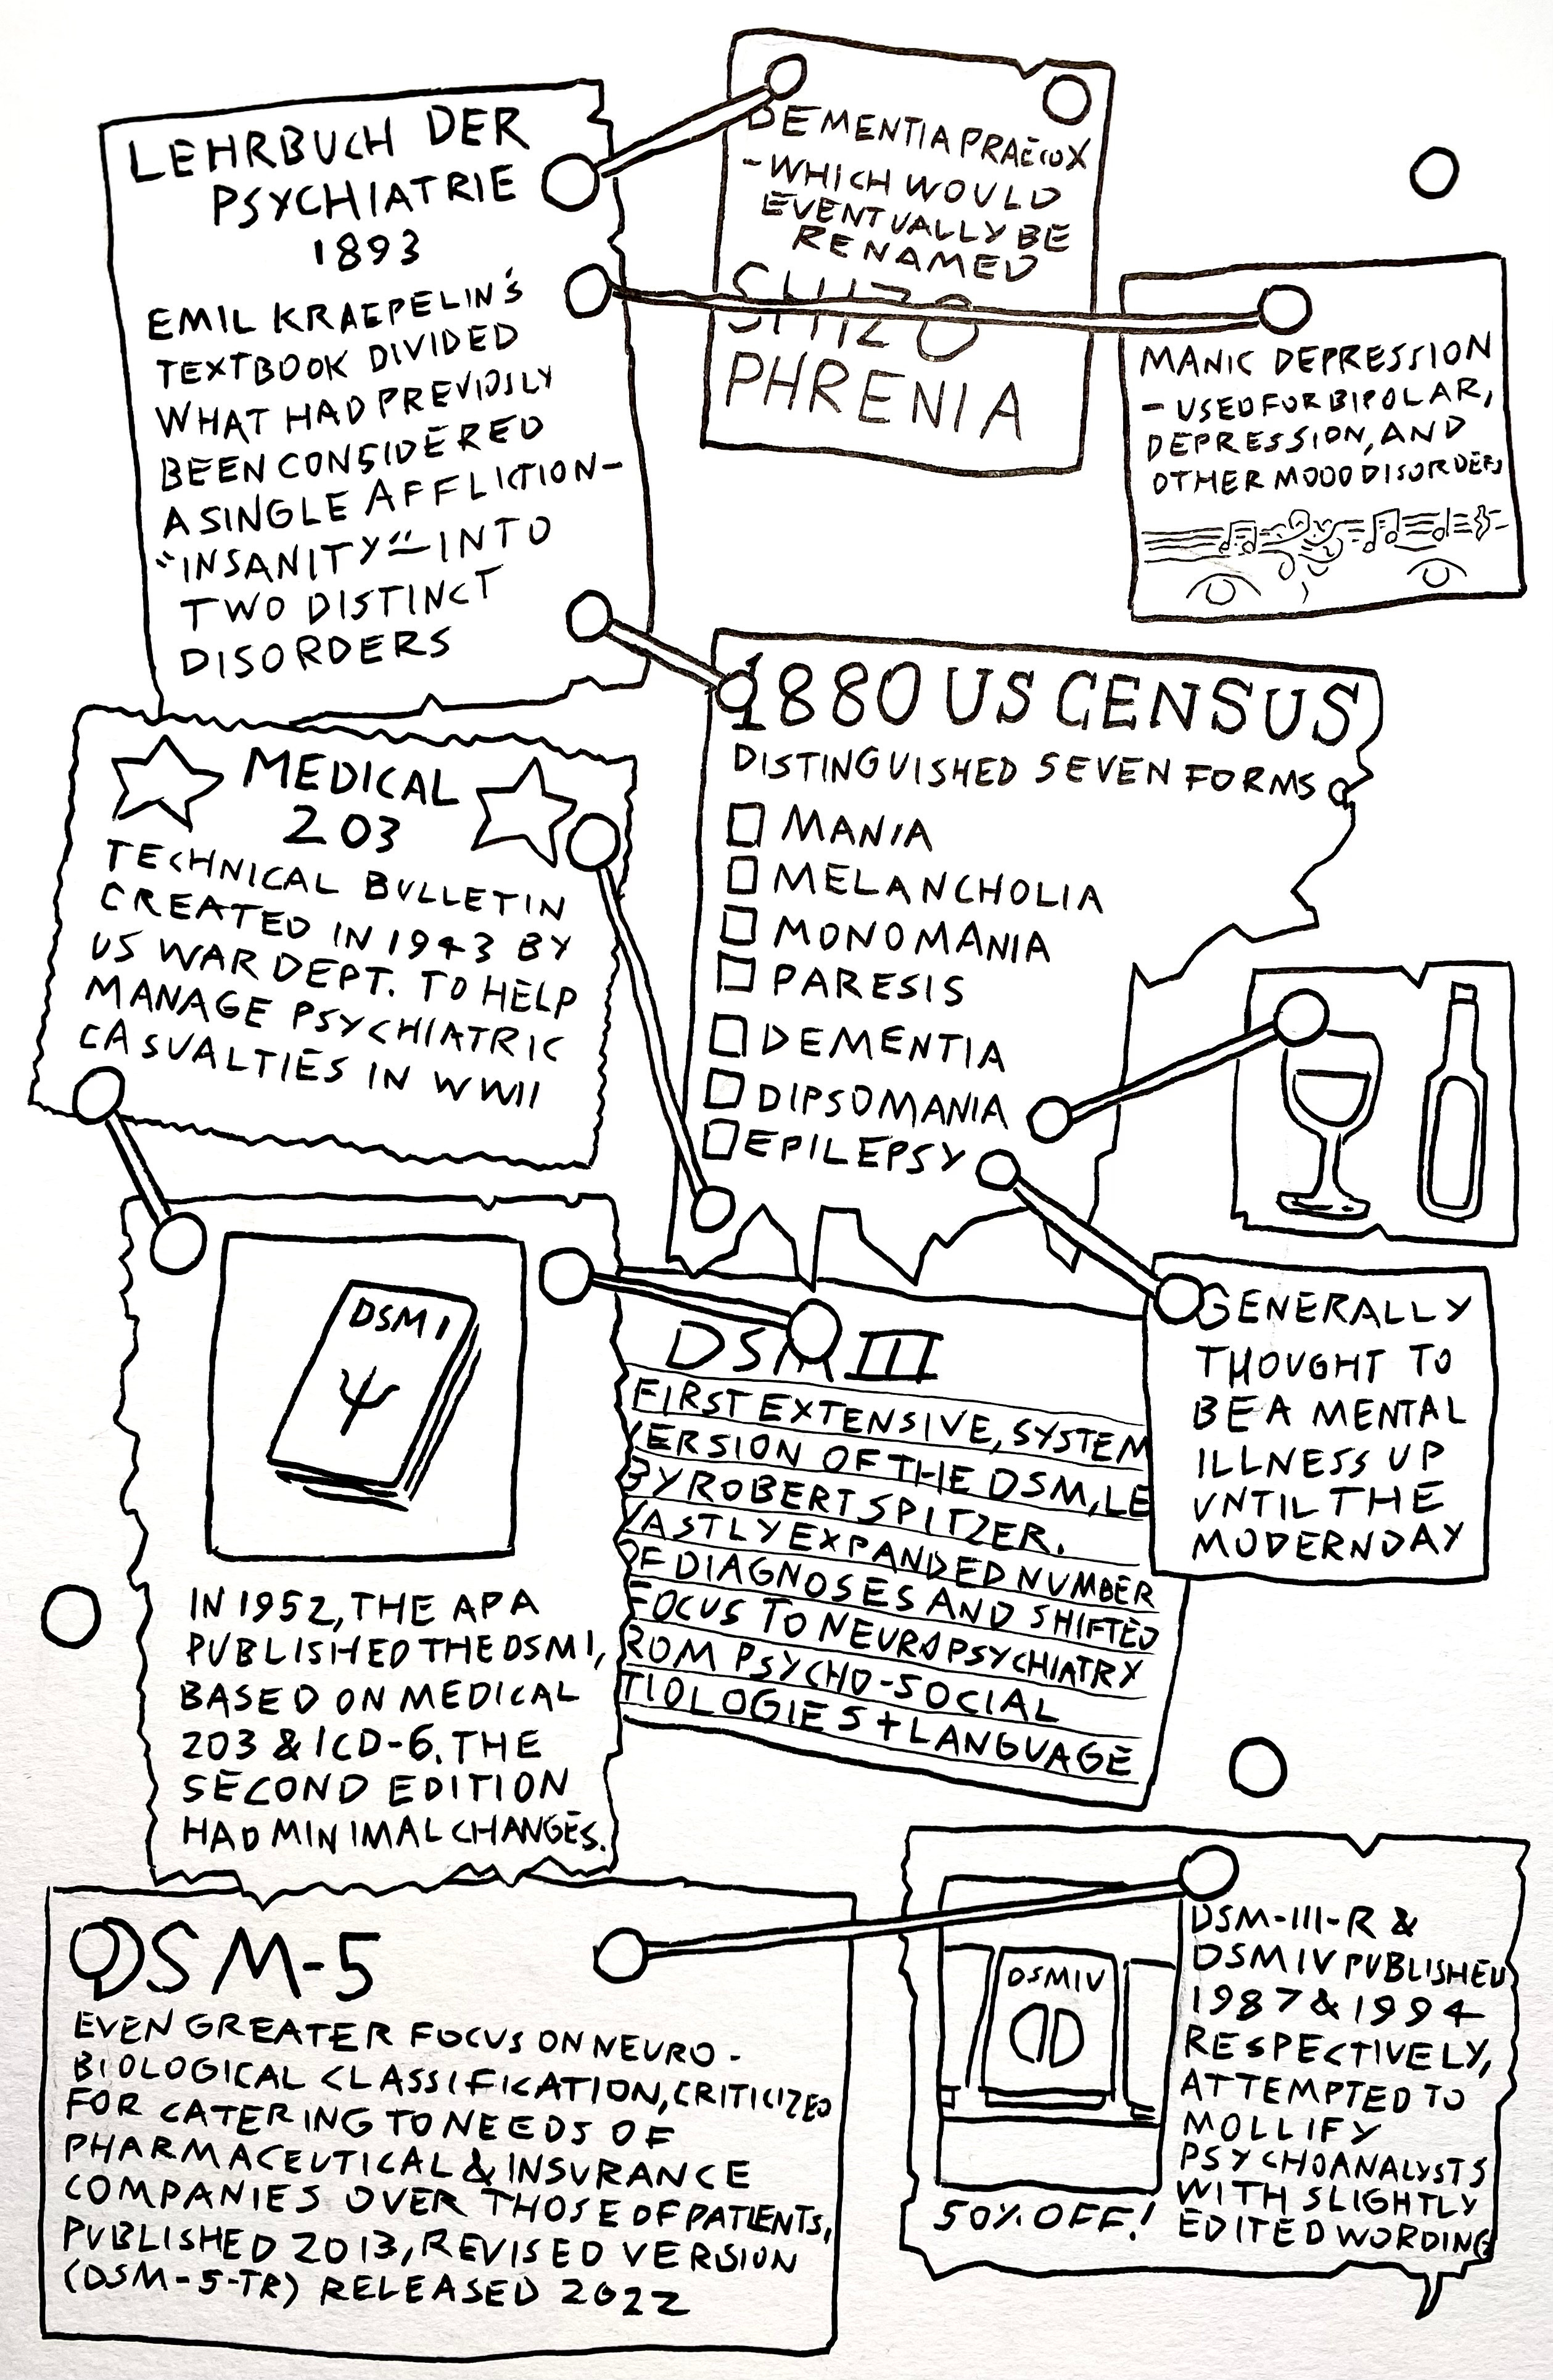 LEHRBUCH DER
PSYCHIATRIE
1893
EMIL KRAEPELIN'S
TEXTBOOK DIVIDED
WHAT HAD PREVIOUSLY
BEEN CONSIDERED
A SINGLE AFFLICTION-
"INSANITY"-INTO
TWO DISTINCT
DISORDERS
DEMENTIA PRAECOX
-WHICH WOULD
EVENTUALLY BE
RENAMED
SHIZO
PHRENIA
MANIC DEPRESSION
- USED FOR BIPOLAR,
DEPRESSION, AND
OTHER MOOD DISORDERS
1880 US CENSUS
DISTINGUISHED SEVEN FORMS
MANIA
MELANCHOLIA
MONOMANIA
PARESIS
DEMENTIA
DIPSOMANIA
EPILEPSY
MEDICAL
203
TECHNICAL BULLETIN
CREATED IN 1943 BY
US WAR DEPT. TO HELP
MANAGE PSYCHIATRIC
CASUALTIES IN WWII
GENERALLY
THOUGHT TO
BE A MENTAL
ILLNESS UP
UNTIL THE
MODERN DAY
DSM I
Ψ
IN 1952, THE APA
PUBLISHED THE DSM I,
BASED ON MEDICAL
203 & ICD-6. THE
SECOND EDITION
HAD MINIMAL CHANGES.
DSM III
FIRST EXTENSIVE, SYSTEM
VERSION OF THE DSM, LE
BY ROBERT SPITZER.
VASTLY EXPANDED NUMBER
OF DIAGNOSES AND SHIFTED
FOCUS TO NEUROPSYCHIATRY
ROM PSYCHO-SOCIAL
TIOLOGIES + LANGUAGE
DSM-5
EVEN GREATER FOCUS ON NEURO-
BIOLOGICAL CLASSIFICATION, CRITICIZED
FOR CATERING TO NEEDS OF
PHARMACEUTICAL & INSURANCE
COMPANIES OVER THOSE OF PATIENTS,
PUBLISHED 2013, REVISED VERSION
(DSM-5-TR) RELEASED 2022
DSM IV
50% OFF!
DSM-III-R &
DSM IV PUBLISHED
1987 & 1994
RESPECTIVELY,
ATTEMPTED TO
MOLLIFY
PSYCHOANALYSTS
WITH SLIGHTLY
EDITED WORDING